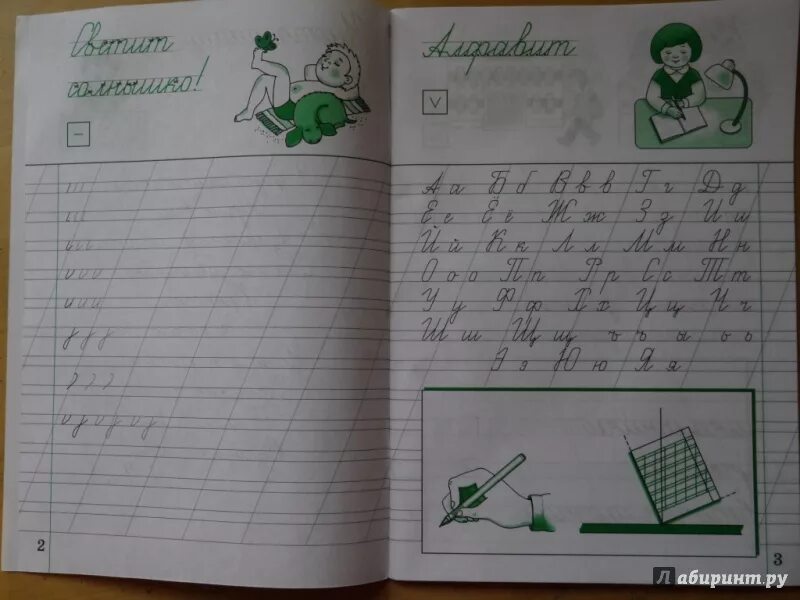 Светит
солнышко!
2
Алфавит
V
А а Б б В в в Г г Д д
Е е Ё ё Ж ж З з И и
Й й К к Л л М м Н н
О о о П п Р р С с Т т
У у Ф ф Х х Ц ц Ч ч
Ш ш Щ щ ъ ъ ы ь ь
Э э Ю ю Я я
3
Лабиринт.ру